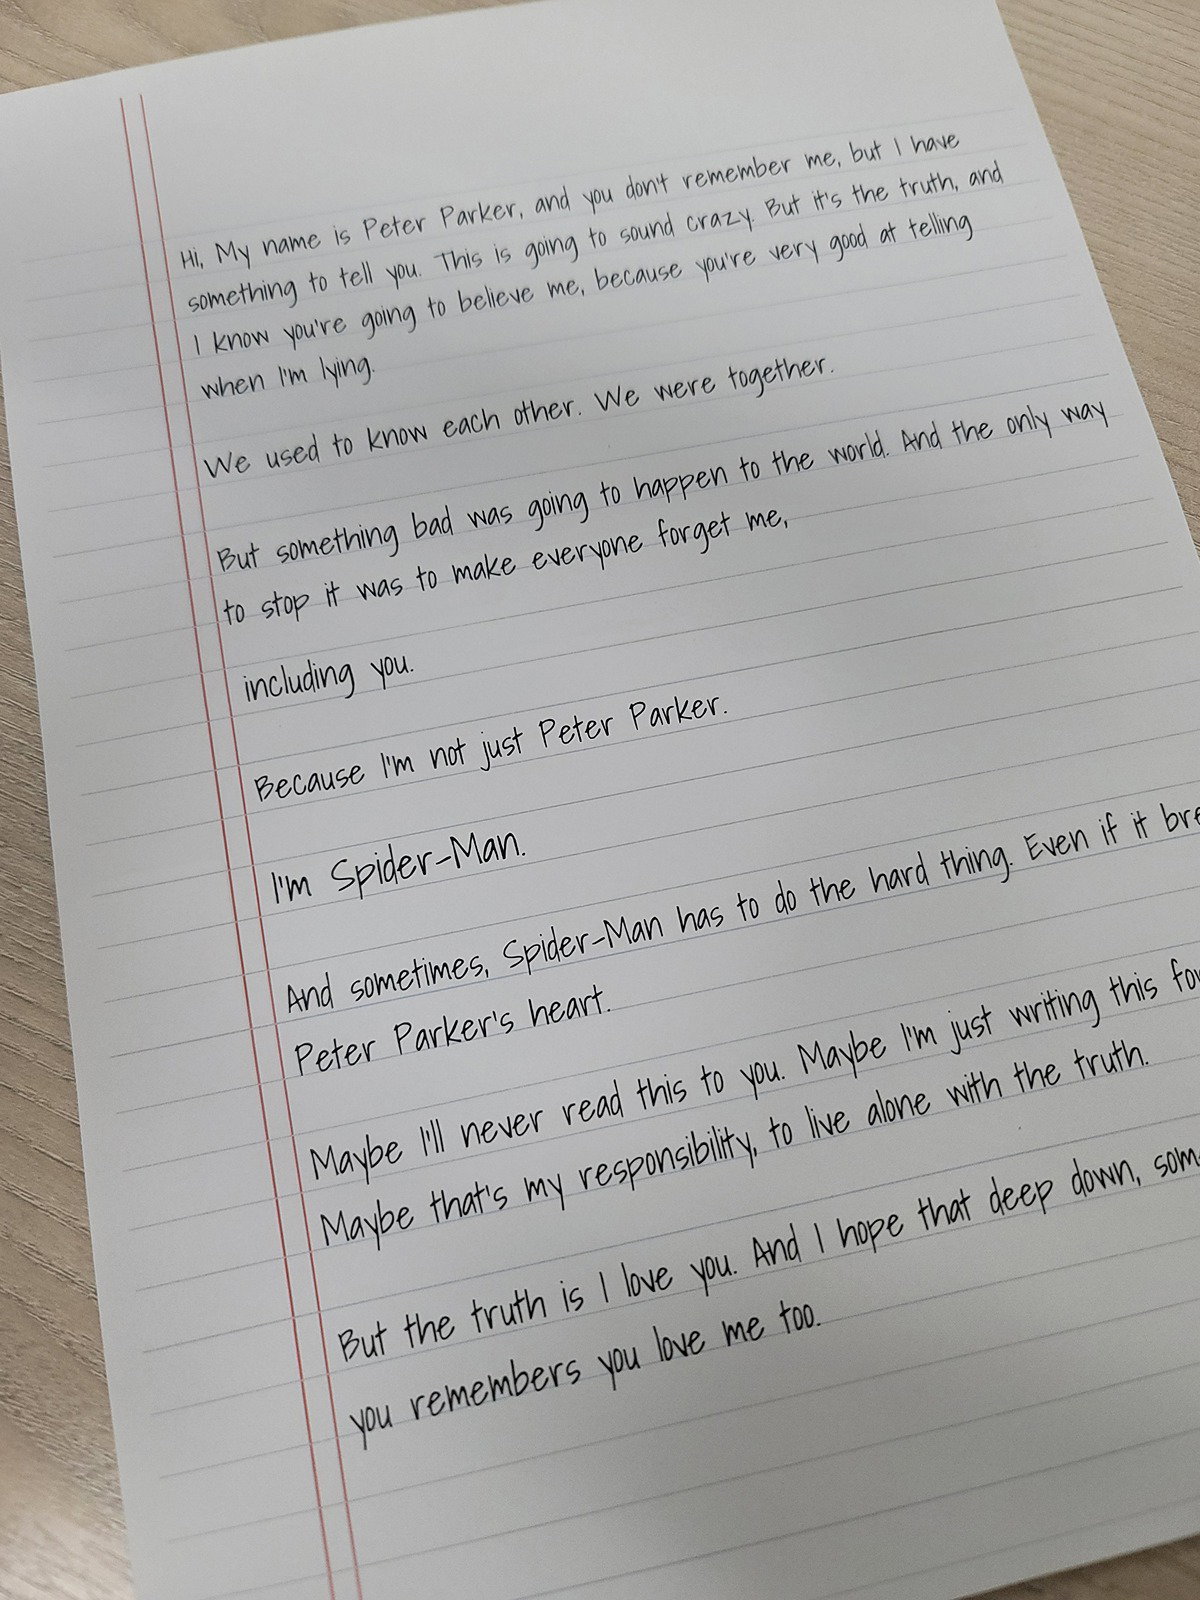 Hi, My name is Peter Parker, and you don't remember me, but I have
something to tell you. This is going to sound crazy. But it's the truth, and
I know you're going to believe me, because you're very good at telling
when I'm lying.
We used to know each other. We were together.
But something bad was going to happen to the world. And the only way
to stop it was to make everyone forget me,
including you.
Because I'm not just Peter Parker.
I'm Spider-Man.
And sometimes, Spider-Man has to do the hard thing. Even if it
Peter Parker's heart.
Maybe I'll never read this to you. Maybe I'm just writing this
Maybe that's my responsibility, to live alone with the truth.
But the truth is I love you. And I hope that deep down,
you remembers you love me too.